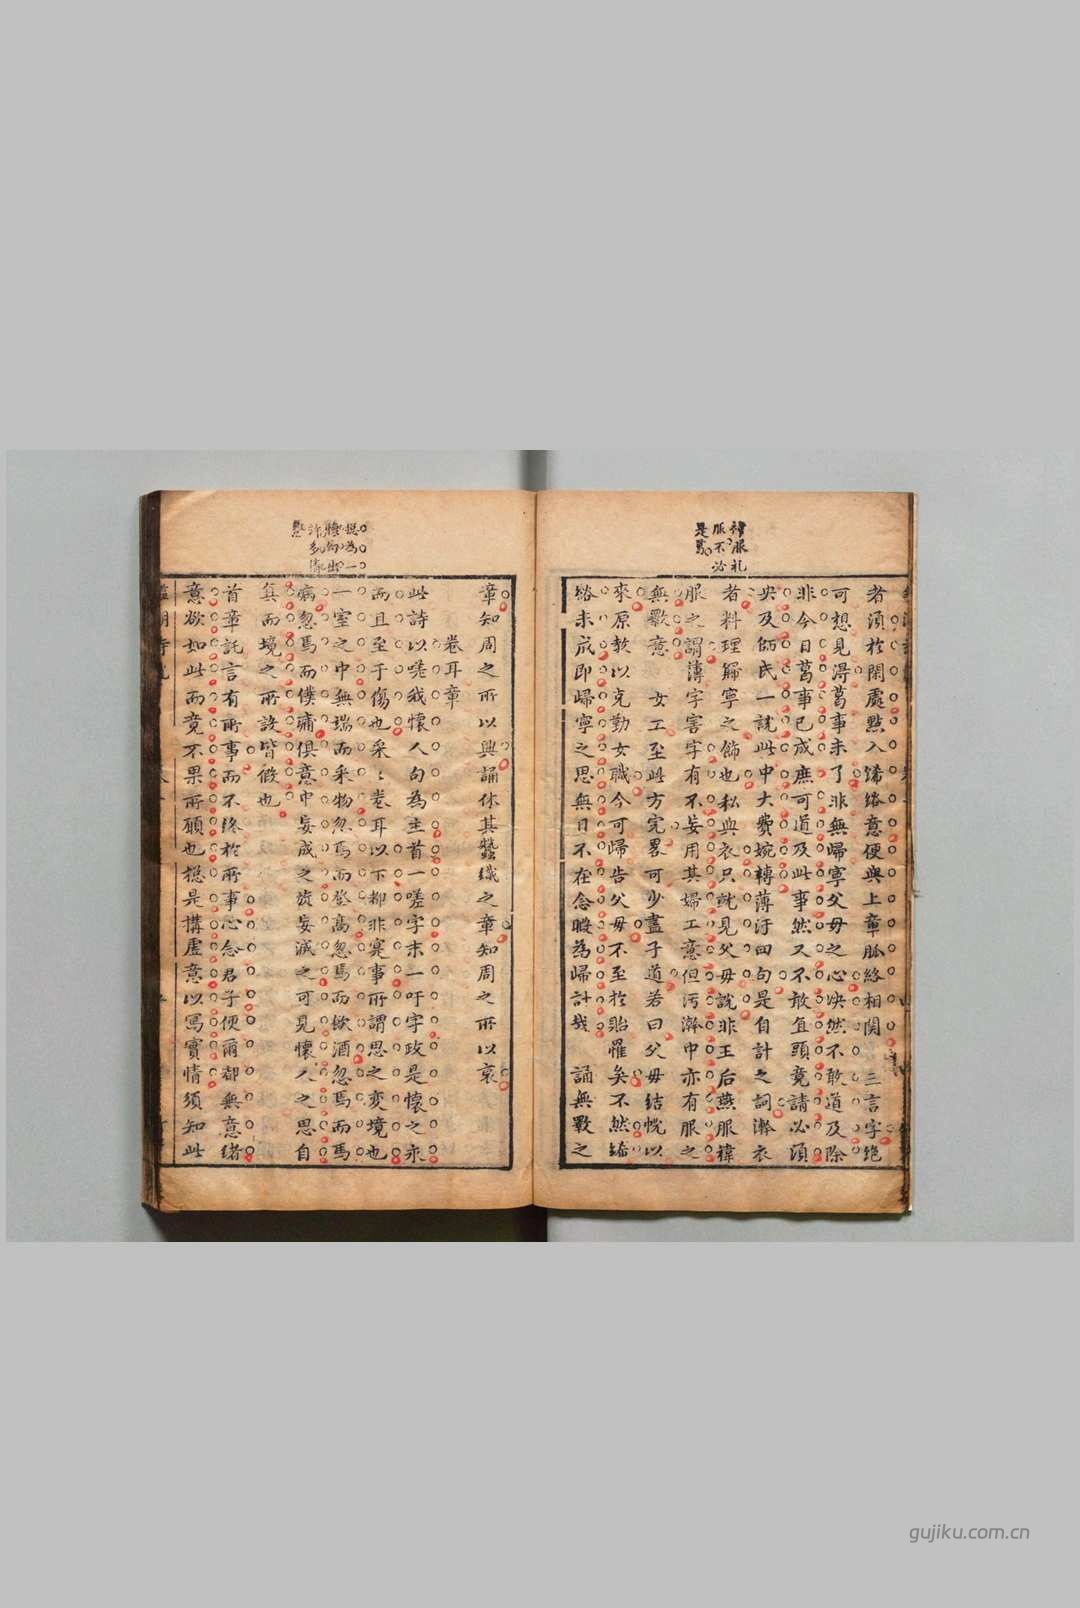 褘服
服不必
是禮
者須於閑處點入絺綌意便與上章脈絡相関 三言字絶
可想見淂葛事未了非無歸寧父母之心决然不敢道及除
非今日葛事已成庶可道及此事然又不敢直頭竟請必須
央及師氏一説此中大費婉轉薄汙四句是自計之詞澣衣
者料理歸寧之飾也私與衣只就見父母說非王后燕服褘
服之謂薄字害字有不妄用其婦工意但污澣中亦有服之
無斁意 女工至此方完畧可少盡子道若曰父母結悦以
來原敎以克勤女職今可歸告父母不至於貽罹矣不然絺
綌未成即歸寧之思無日不在念暇為歸計哉 誦無斁之
章知周之所以興誦休其蠶織之章知周之所以衰
卷耳章
此詩以嗟我懷人句為主首一嗟字末一吁字政是懷之永
而且至于傷也采〻卷耳以下抑非寔事所謂思之変境也
一室之中無端而采物忽焉而登髙忽焉而飲酒忽焉而馬
病忽焉而僕痡俱意中妄成之旋妄滅之可見懷人之思自
真而境之所設皆假也
首章託言有所事而不終於所事心念君子便爾都無意緒
意欲如此而竟不果所願也揔是搆虚意以寫實情須知此
揔為一
懐向出
許多
愁